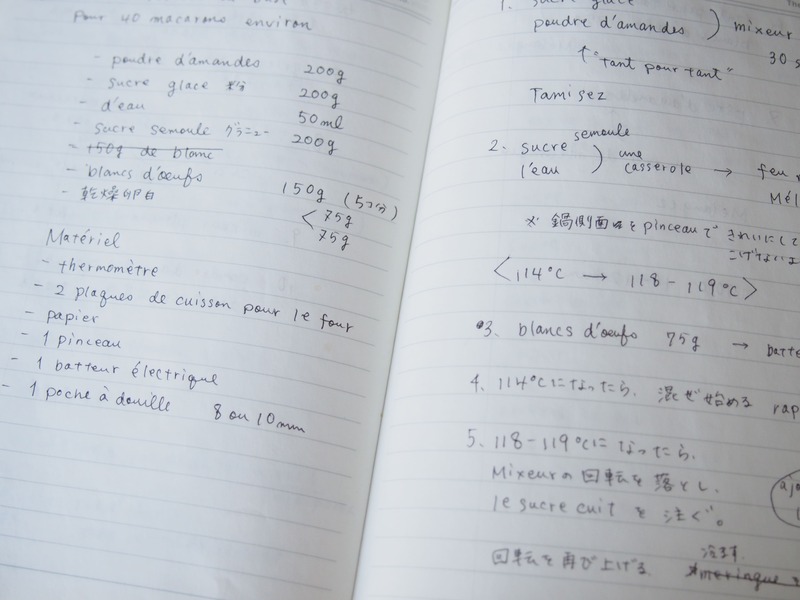 Pour 40 macarons environ
- poudre d'amandes 200g
- sucre glace 200g
- d'eau 50ml
- sucre semoule グラニュー 200g
- +50g de blanc
- blancs d'œufs 150g (5コ分)
- 乾燥卵白 < 75g
75g
Matériel
- thermomètre
- 2 plaques de cuisson pour le four
- papier
- 1 pinceau
- 1 batteur électrique
- 1 poche à douille 8 ou 10mm
1. sucre glace
poudre d'amandes ) mixeur
30 s
↑ "tant pour tant"
Tamisez
2. sucre semoule
l'eau ) une casserole → feu
Mél
※ 鍋側面をpinceauで きれいにして
こげないよ
<114°C → 118-119°C>
3. blancs d'œufs 75g → batte
4. 114°Cになったら、混ぜ始める rap
5. 118-119°Cに なったら、
Mixeurの回転を落とし、
le sucre cuit を 注ぐ。
ajo
回転を再び上げる
冷ます
*meringue